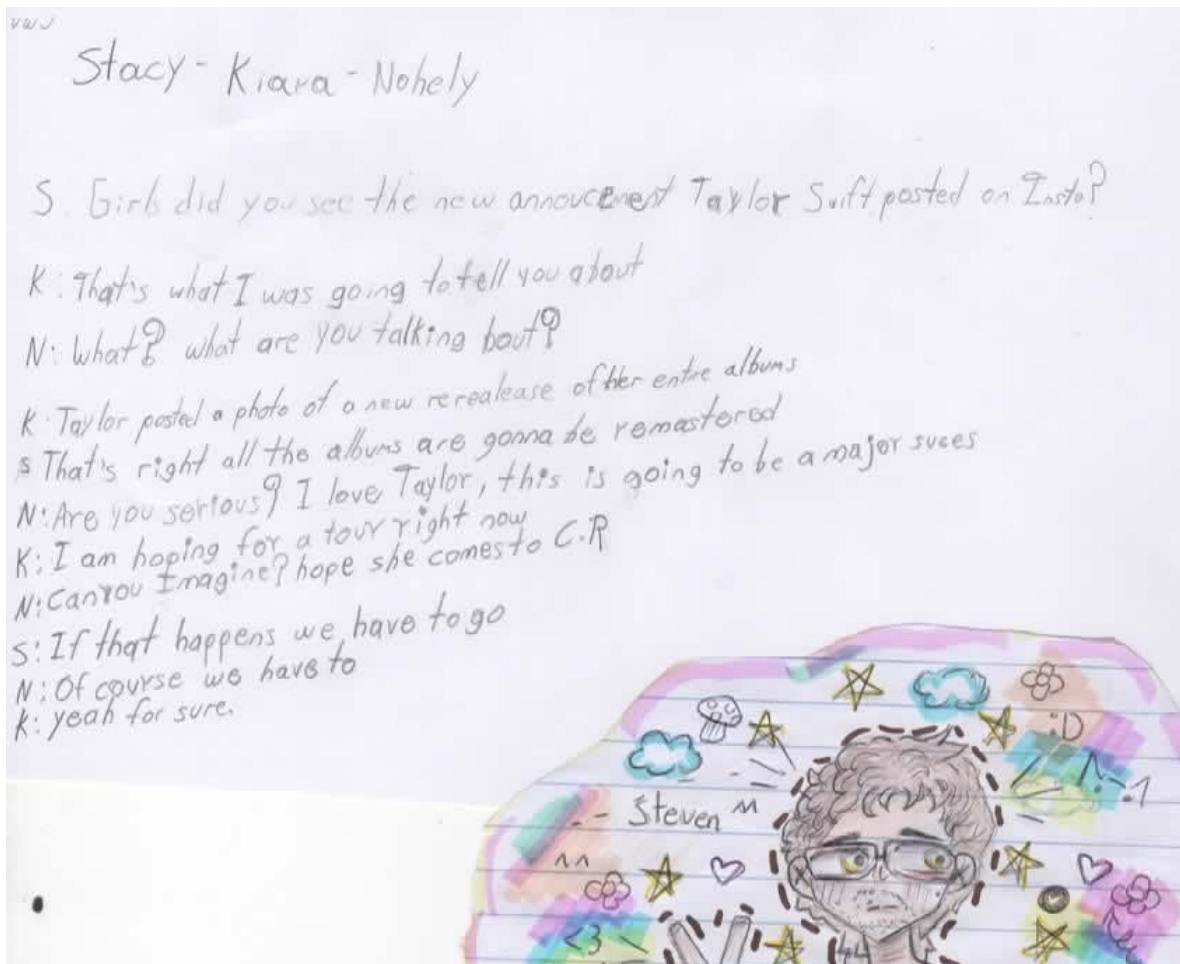 vwv
Stacy - Kiara - Nohely
S. Girls did you see the new annoucement Taylor Swift posted on Insta?
K: That's what I was going to tell you about
N: What? what are you talking bout?
K: Taylor posted a photo of a new rerealease of her entire albums
S That's right all the albums are gonna be remastered
N: Are you serious? I love Taylor, this is going to be a major suces
K: I am hoping for a tour right now
N: Can you Imagine? hope she comes to C.R
S: If that happens we have to go
N: Of course we have to
K: yeah for sure.
:D
Steven ^^
^^
<3
44